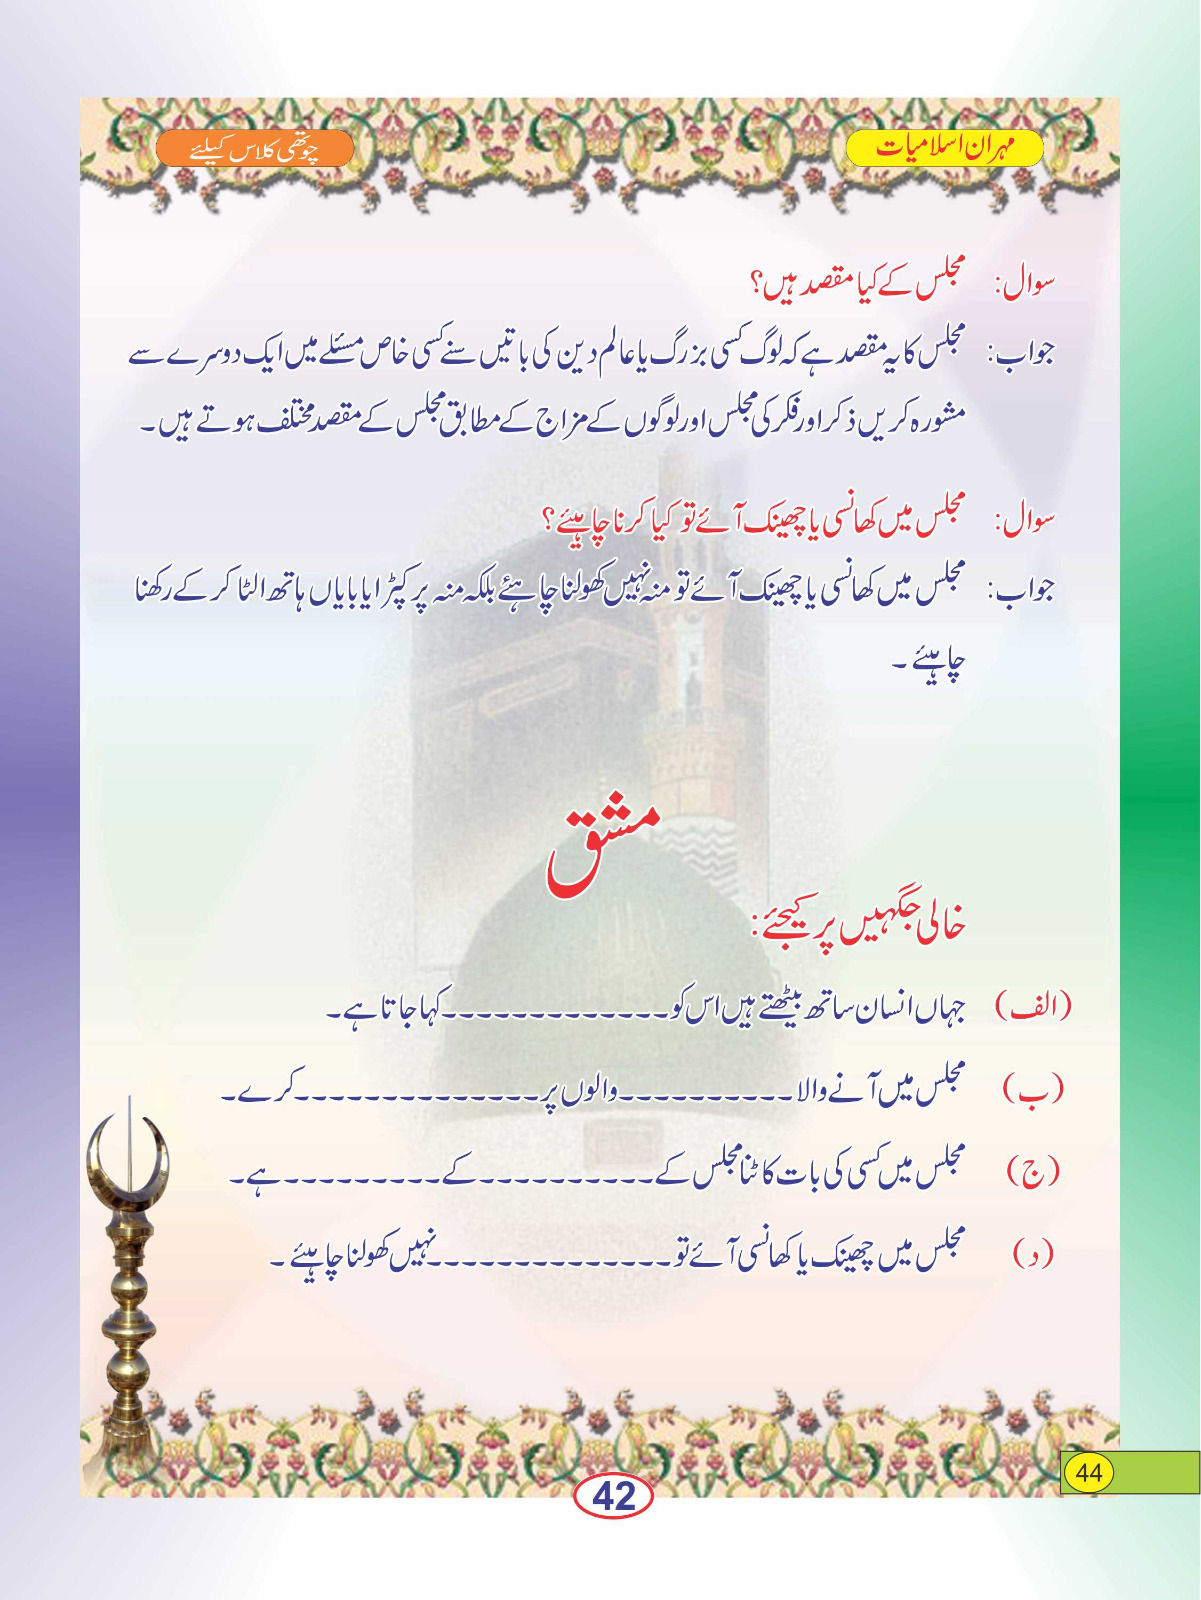 مہران اسلامیات
چوتھی کلاس کیلئے
سوال: مجلس کے کیا مقصد ہیں؟
جواب: مجلس کا یہ مقصد ہے کہ لوگ کسی بزرگ یا عالم دین کی باتیں سنے کسی خاص مسئلے میں ایک دوسرے سے
مشورہ کریں ذکر اور فکر کی مجلس اور لوگوں کے مزاج کے مطابق مجلس کے مقصد مختلف ہوتے ہیں۔
سوال: مجلس میں کھانسی یا چھینک آئے تو کیا کرنا چاہیئے؟
جواب: مجلس میں کھانسی یا چھینک آئے تو منہ نہیں کھولنا چاہئے بلکہ منہ پر کپڑا یا بایاں ہاتھ الٹا کر کے رکھنا
چاہیئے۔
مشق
خالی جگہیں پر کیجئے:
(الف) جہاں انسان ساتھ بیٹھتے ہیں اس کو------------- کہا جاتا ہے۔
(ب) مجلس میں آنے والا---------- والوں پر-------------- کرے۔
(ج) مجلس میں کسی کی بات کاٹنا مجلس کے---------- کے--------- ہے۔
(د) مجلس میں چھینک یا کھانسی آئے تو-------------- نہیں کھولنا چاہیئے۔
44
42